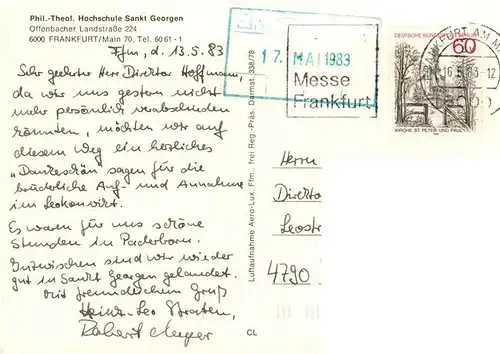 Phil.-Theol. Hochschule Sankt Georgen
Offenbacher Landstraße 224
6000 FRANKFURT/Main 70, Tel. 60 61 - 1
Ffm, d. 13.5.83
Sehr geehrter Herr Direktor Hoffmann,
da wir uns gestern nicht
mehr persönlich verabschieden
konnten, möchten wir auf
diesem Weg ein herzliches
"Dankeschön" sagen für die
brüderliche Auf- und Annahme
im Leokonvikt.
Es waren für uns schöne
Stunden in Paderborn.
Inzwischen sind wir wieder
gut in Sankt Georgen gelandet.
Mit freundlichem Gruß
Heinz-Leo
Robert Meyer
CL
Luftaufnahme Aero-Lux, Ffm., frei Reg.-Präs. Darmst. 338/78
17. MAI 1983
Messe
Frankfurt
DEUTSCHE BUNDESPOST BERLIN
60
KIRCHE ST. PETER UND PAUL
FRANKFURT AM M
16.5.83-12
Herrn
Direktor
Leostr
4790